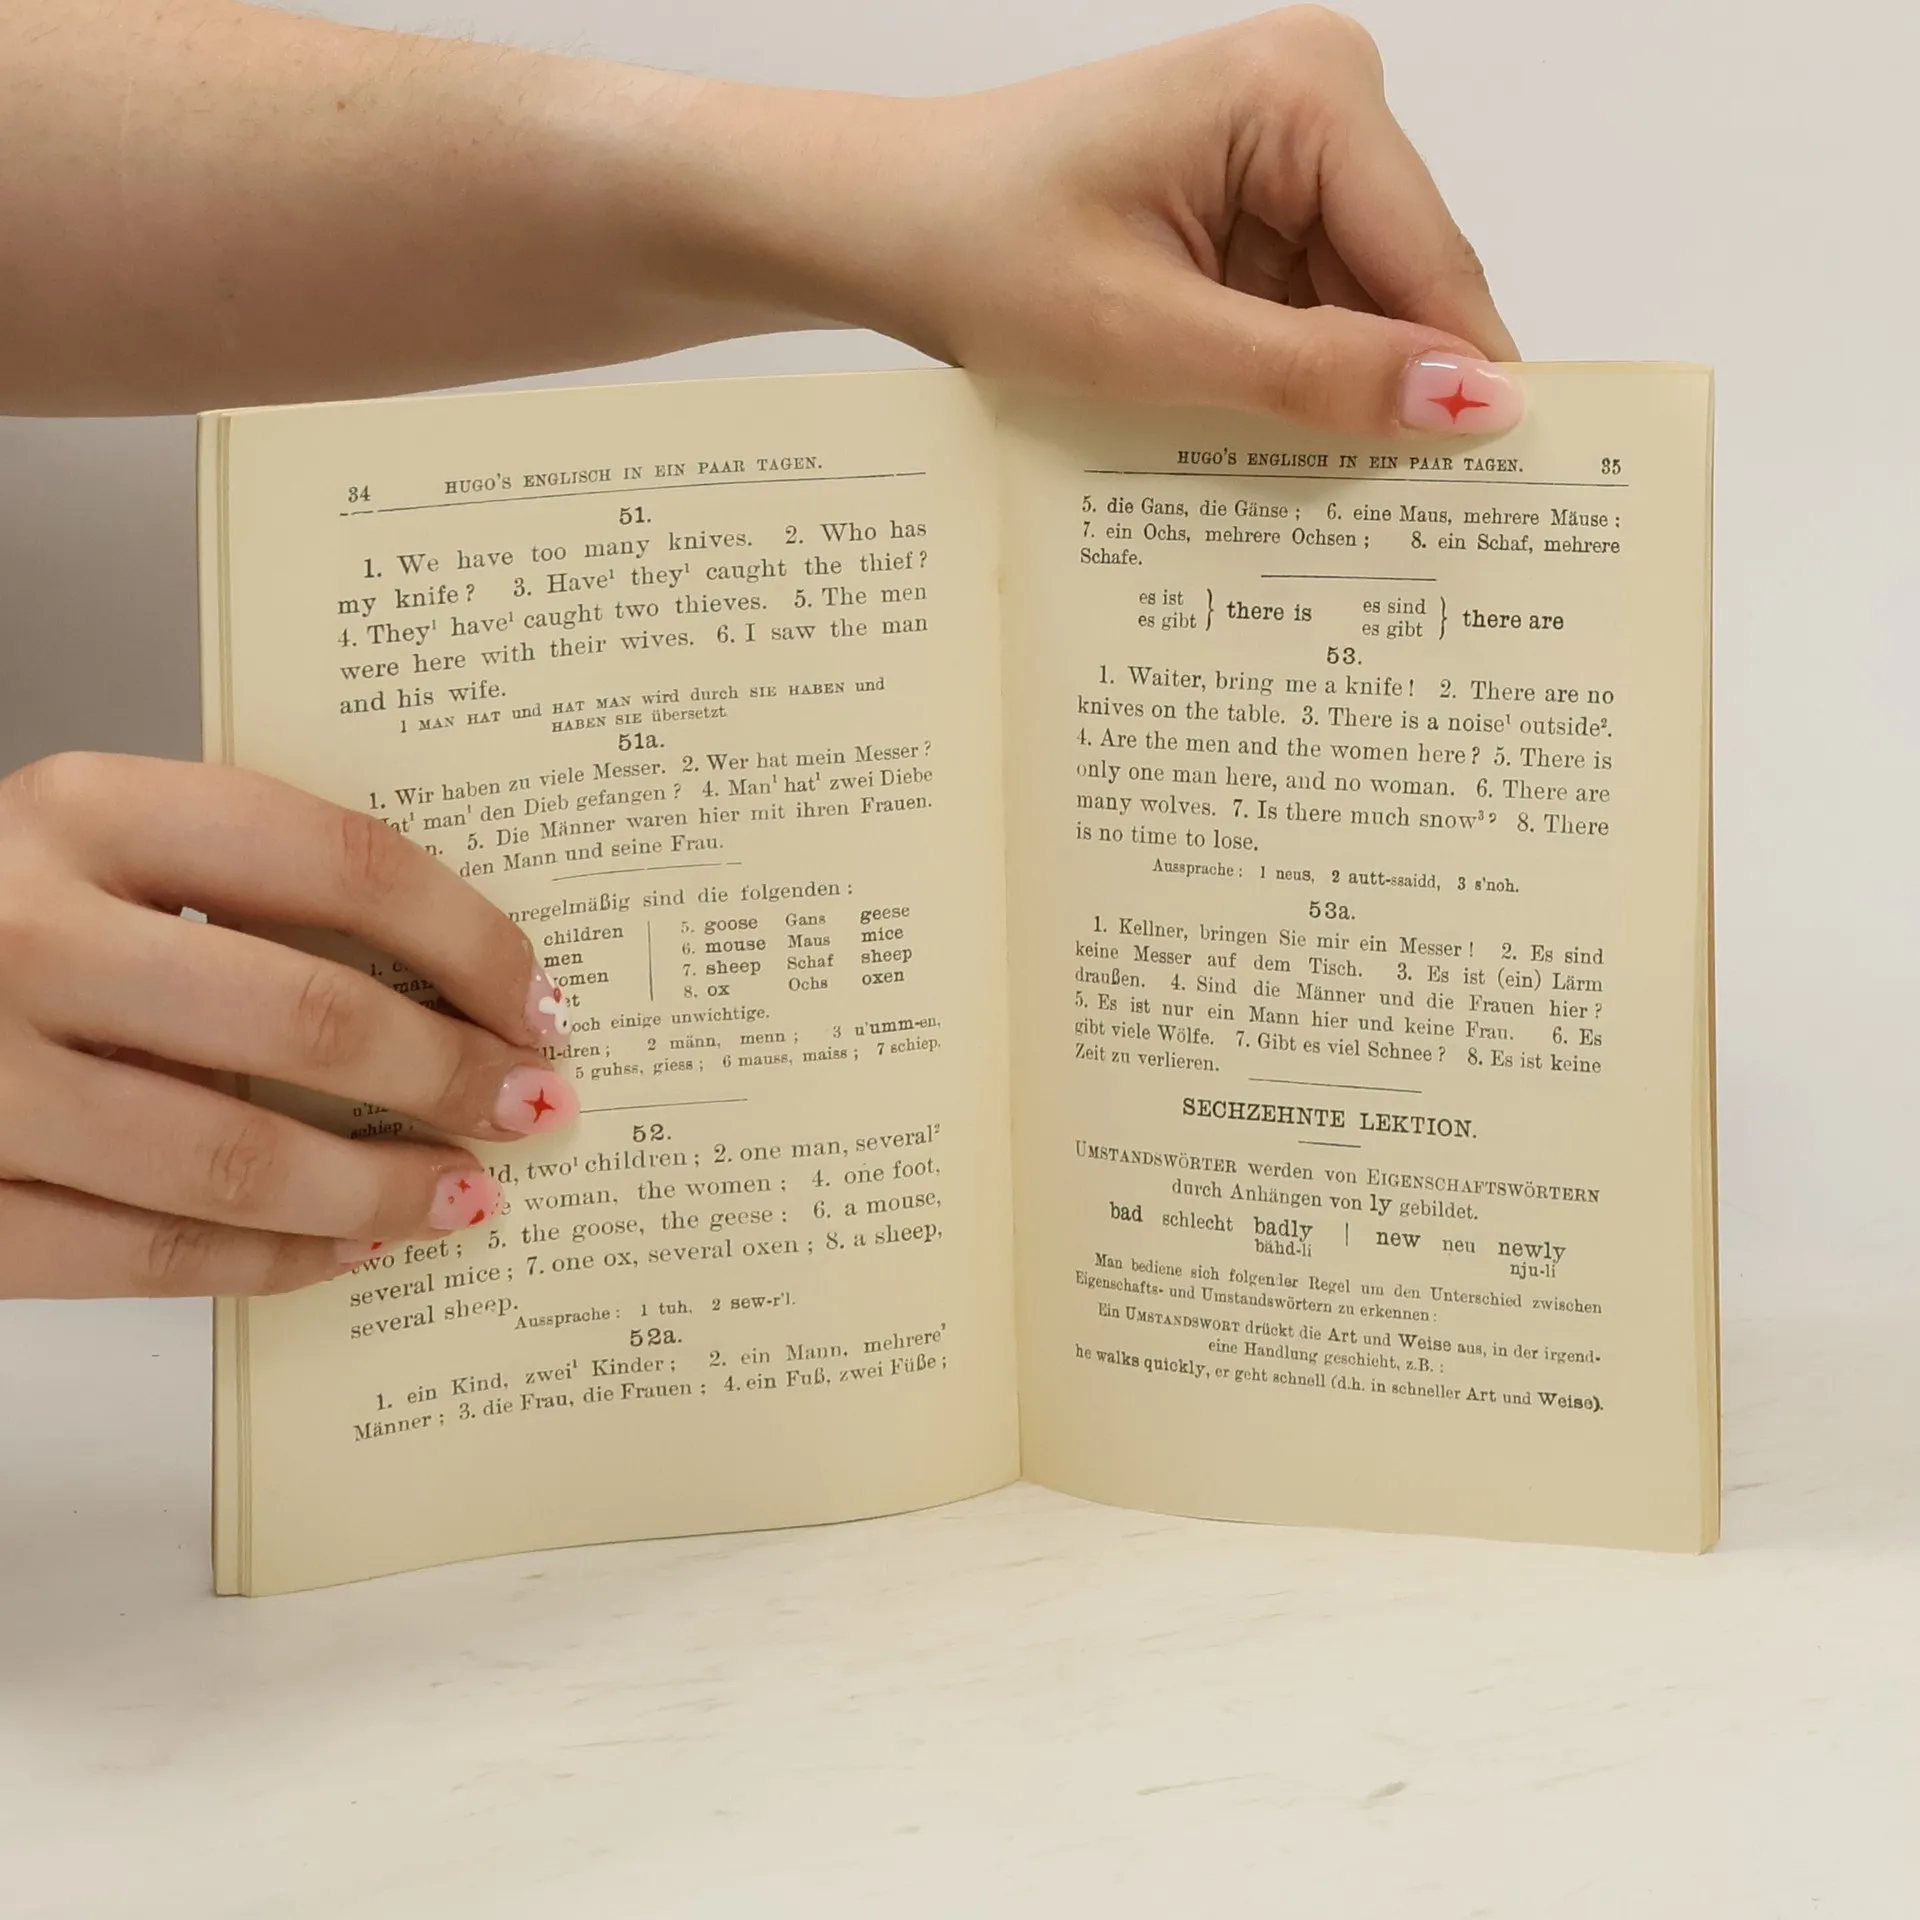 34 HUGO'S ENGLISCH IN EIN PAAR TAGEN.
51.
1. We have too many knives. 2. Who has
my knife? 3. Have¹ they¹ caught the thief?
4. They¹ have¹ caught two thieves. 5. The men
were here with their wives. 6. I saw the man
and his wife.
1 MAN HAT und HAT MAN wird durch SIE HABEN und
HABEN SIE übersetzt
51a.
1. Wir haben zu viele Messer. 2. Wer hat mein Messer?
man¹ den Dieb gefangen? 4. Man¹ hat¹ zwei Diebe
5. Die Männer waren hier mit ihren Frauen.
den Mann und seine Frau.
sind die folgenden:
children 5. goose Gans geese
men 6. mouse Maus mice
7. sheep Schaf sheep
8. ox Ochs oxen
einige unwichtige.
2 männ, menn; 3 u'umm-en,
5 guhss, giess; 6 mauss, maiss; 7 schiep,
schiep.
52.
two¹ children; 2. one man, several²
woman, the women; 4. one foot,
two feet; 5. the goose, the geese: 6. a mouse,
several mice; 7. one ox, several oxen; 8. a sheep,
several sheep.
Aussprache: 1 tuh, 2 sew-r'l.
52a.
1. ein Kind, zwei¹ Kinder; 2. ein Mann, mehrere²
Männer; 3. die Frau, die Frauen; 4. ein Fuß, zwei Füße;
HUGO'S ENGLISCH IN EIN PAAR TAGEN. 35
5. die Gans, die Gänse; 6. eine Maus, mehrere Mäuse:
7. ein Ochs, mehrere Ochsen; 8. ein Schaf, mehrere
Schafe.
es ist } there is es sind } there are
es gibt es gibt
53.
1. Waiter, bring me a knife! 2. There are no
knives on the table. 3. There is a noise¹ outside².
4. Are the men and the women here? 5. There is
only one man here, and no woman. 6. There are
many wolves. 7. Is there much snow³? 8. There
is no time to lose.
Aussprache: 1 neus, 2 autt-ssaidd, 3 s'noh.
53a.
1. Kellner, bringen Sie mir ein Messer! 2. Es sind
keine Messer auf dem Tisch. 3. Es ist (ein) Lärm
draußen. 4. Sind die Männer und die Frauen hier?
5. Es ist nur ein Mann hier und keine Frau. 6. Es
gibt viele Wölfe. 7. Gibt es viel Schnee? 8. Es ist keine
Zeit zu verlieren.
SECHZEHNTE LEKTION.
UMSTANDSWÖRTER werden von EIGENSCHAFTSWÖRTERN
durch Anhängen von ly gebildet.
bad schlecht badly | new neu newly
bähd-li nju-li
Man bediene sich folgender Regel um den Unterschied zwischen
Eigenschafts- und Umstandswörtern zu erkennen:
Ein UMSTANDSWORT drückt die Art und Weise aus, in der irgend-
eine Handlung geschieht, z.B.:
he walks quickly, er geht schnell (d.h. in schneller Art und Weise).